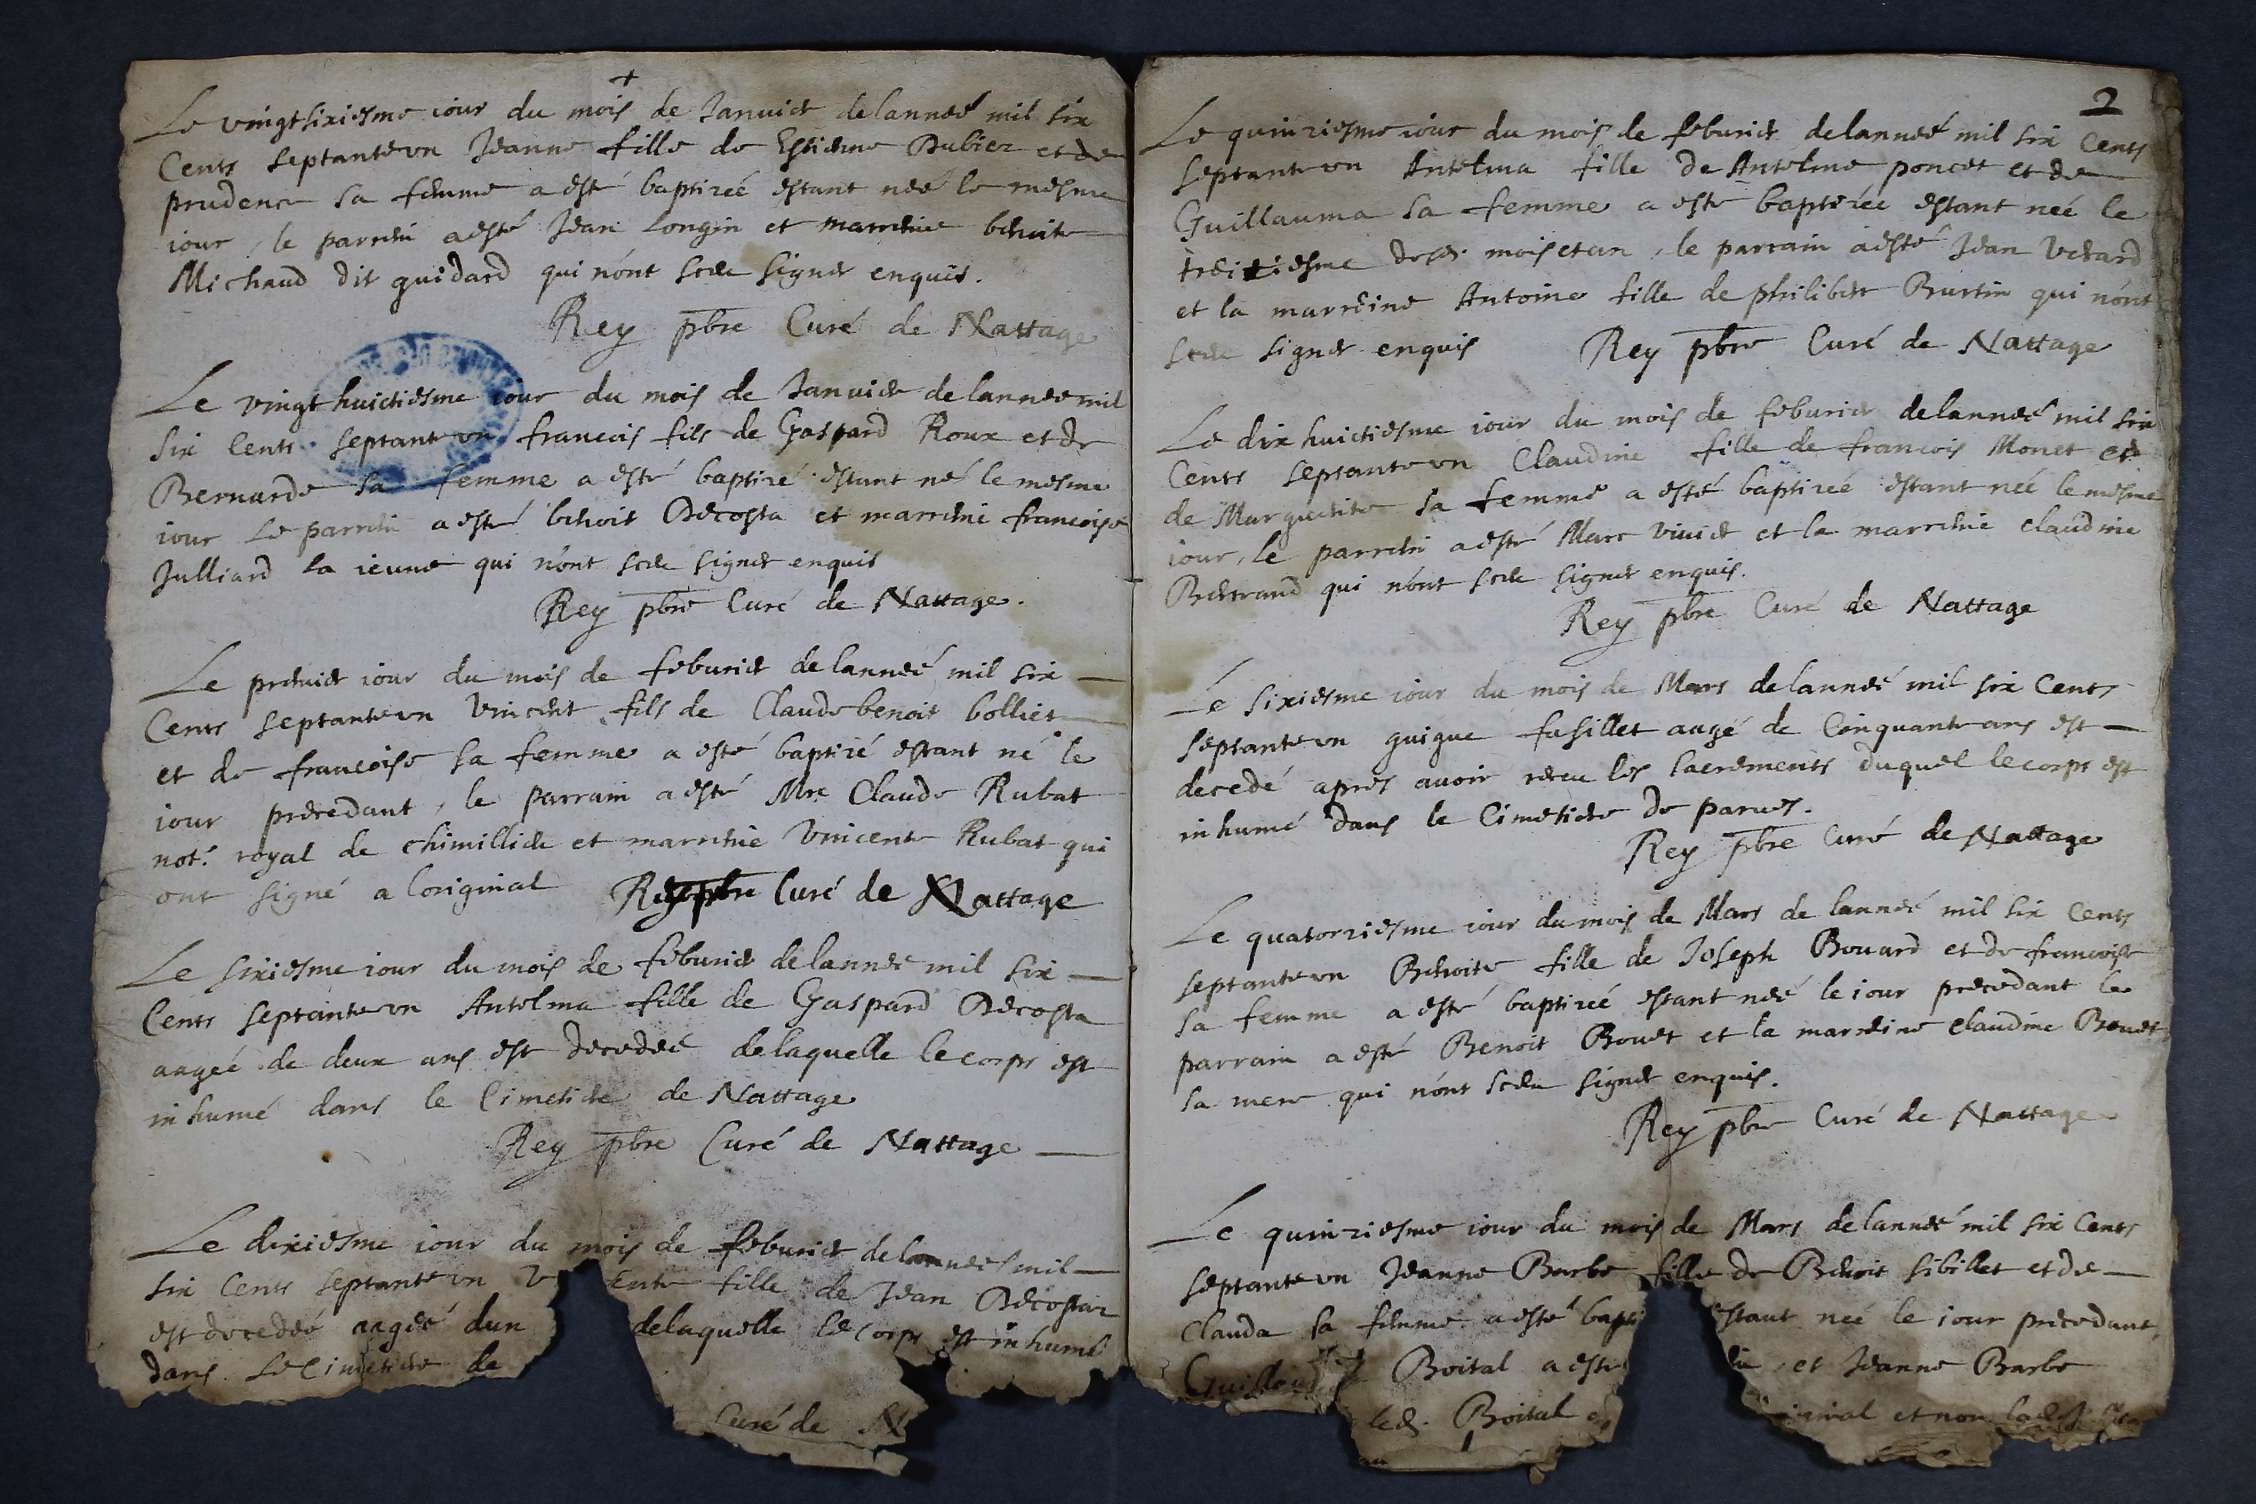 Le vingtsixiesme iour du mois de Ianuier delanneé mil six
Cents septantevn Jeanne fille de Estienne Dubiez et de
prudence sa femme a esté baptizée estant neé le mesme
iour, le parrein a esté Jean Longin et marreine benoite
Michaud dit guidard qui n'ont sceu signer enquis.
Rey pbre Curé de Nattage
Le vingt huictiesme iour du mois de Ianuier de lannee mil
six Cents septantevn francois fils de Gaspard Roux et de
Bernarde sa femme a esté baptizé estant né le mesme
iour le parrein a esté benoit Decosta et marreine francoise
Julliard la ieune qui n'ont sceu signer enquis
Rey pbre Curé de Nattage.
Le premier iour du mois de feburier de lanneé mil six
Cents septantevn Vincent fils de Claude benoit bolliet
et de francoise sa femme a esté baptizé estant né le
iour precedant, le parrain a esté Mre Claude Rubat
not. royal de chimillieu et marreine Vincente Rubat qui
ont signé a loriginal Rey pbre Curé de Nattage
Le sixiesme iour du mois de feburier delannee mil six
Cents septantevn Antelma fille de Gaspard Decosta
aageé de deux ans est decedeé delaquelle le corps est
inhumé dans le Cimetiere de Nattage
Rey pbre Curé de Nattage
Le dixiesme iour du mois de feburier delannee mil
six Cents septantevn fille de Jean Decostaz
est decedeé aageé dun delaquelle le corps est inhumé
dans le Cimetiere de
Curé de N
2
Le quinziesme iour du mois de feburier delanneé mil six Cents
septantevn Antelma fille de Antelme poncet et de
Guillauma sa femme a esté baptizée estant neé le
treiziesme desd. mois et an, le parrain a esté Jean Verard
et la marreine Antoine fille de philibert Burtin qui n'ont
sceu signer enquis Rey pbre Curé de Nattage
Le dix huictiesme iour du mois de feburier delanneé mil six
Cents septantevn Claudine fille de francois Monet et
de Marguerite sa femme a esté baptizeé estant neé le mesme
iour, le parrein a esté Marc viuier et la marreine claudine
Bertrand qui n'ont sceu signer enquis.
Rey pbre Curé de Nattage
Le sixiesme iour du mois de Mars delanneé mil six Cents
septantevn guigue fusillet aagé de Cinquante ans est
decedé apres auoir receu les sacrements duquel le corps est
inhumé dans le Cimetiere de parues.
Rey pbre Curé de Nattage
Le quatorziesme iour du mois de Mars de lanneé mil six Cents
septantevn Benoite fille de Joseph Bouard et de francoise
sa femme a esté baptizeé estant neé le iour precedant le
parrain a esté Benoit Bouet et la marreine claudine Bouet
sa mere qui n'ont sceu signer enquis.
Rey pbre Curé de Nattage
Le quinziesme iour du mois de Mars delanneé mil six Cents
septantevn Jeanne Barbe fille de Benoit sibillet et de
Clauda sa femme a esté bapti estant neé le iour precedant,
Boital a esté et Jeanne Barbe
led. Boital et non